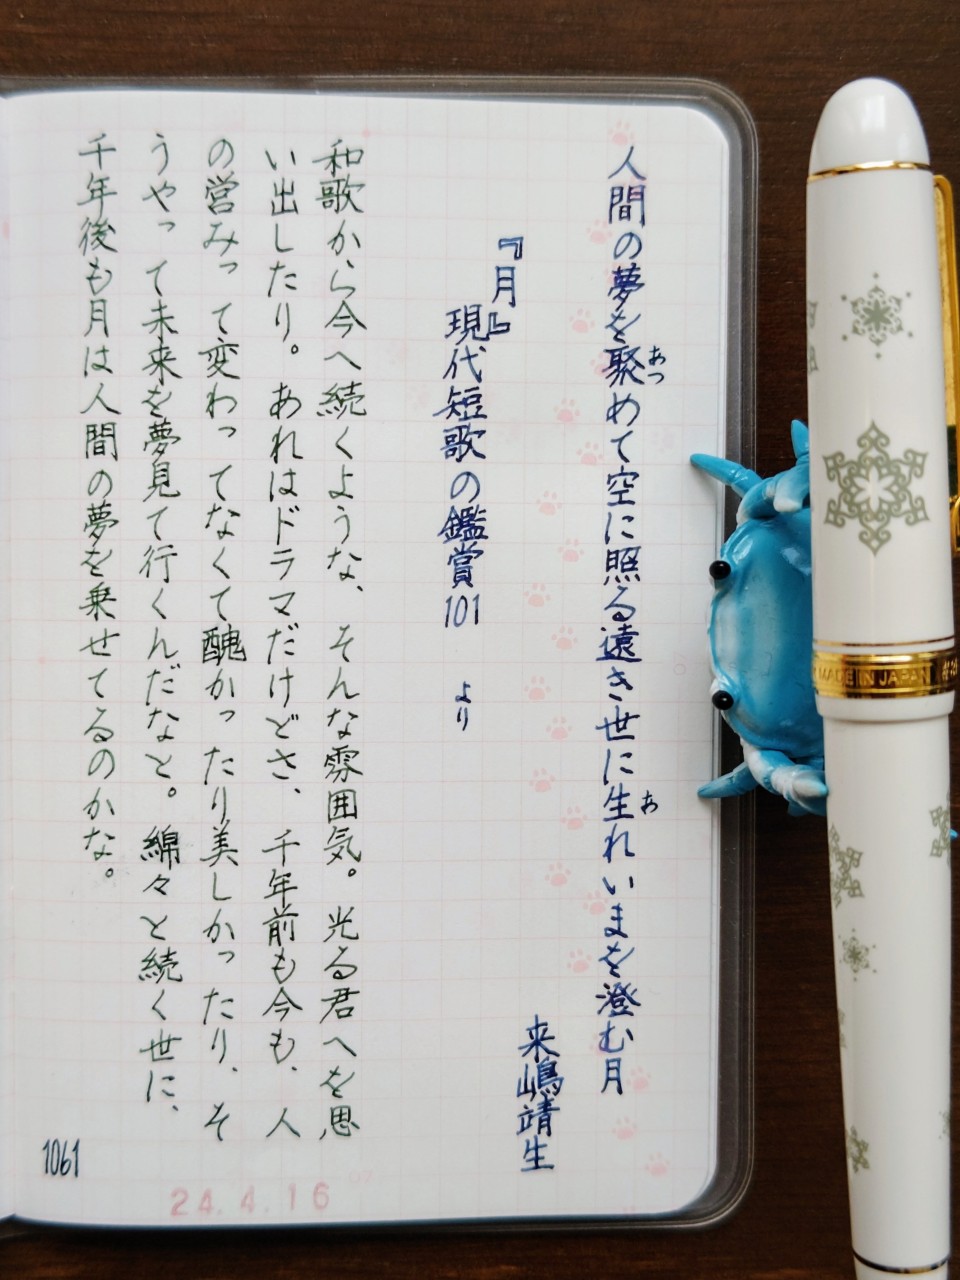 人間の夢を聚めて空に照る遠き世に生れいまを澄む月
あつ
あ
来嶋靖生
『月』
現代短歌の鑑賞101 より
和歌から今へ続くような、そんな雰囲気。光る君へを思
い出したり。あれはドラマだけどさ、千年前も今も、人
の営みって変わってなくて醜かったり美しかったり、そ
うやって未来を夢見て行くんだなと。綿々と続く世に、
千年後も月は人間の夢を乗せてるのかな。
1061
24.4.16
MADE IN JAPAN